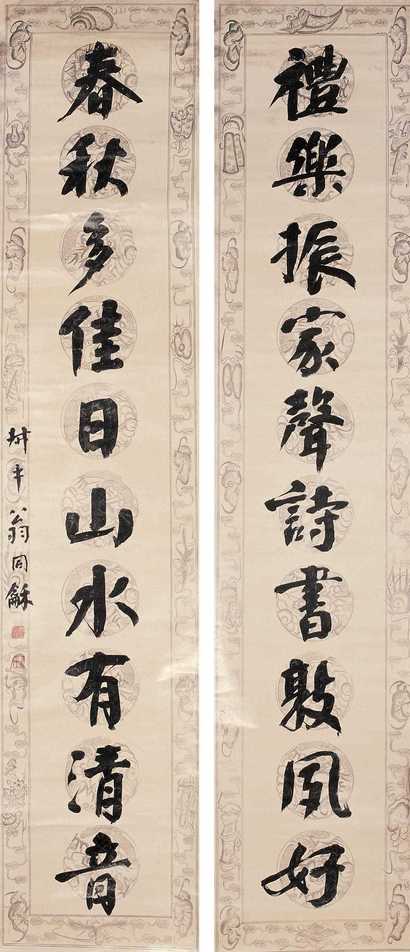 禮樂振家聲詩書敦夙好
春秋多佳日山水有清音
叔平翁同龢